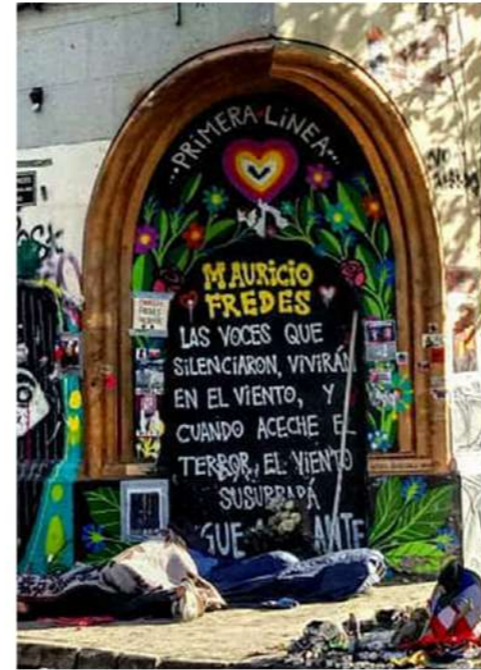 ...PRIMERA LINEA...
MAURICIO
FREDES
LAS VOCES QUE
SILENCIARON, VIVIRÁN
EN EL VIENTO, Y
CUANDO ACECHE EL
TERROR, EL VIENTO
SUSURRARÁ